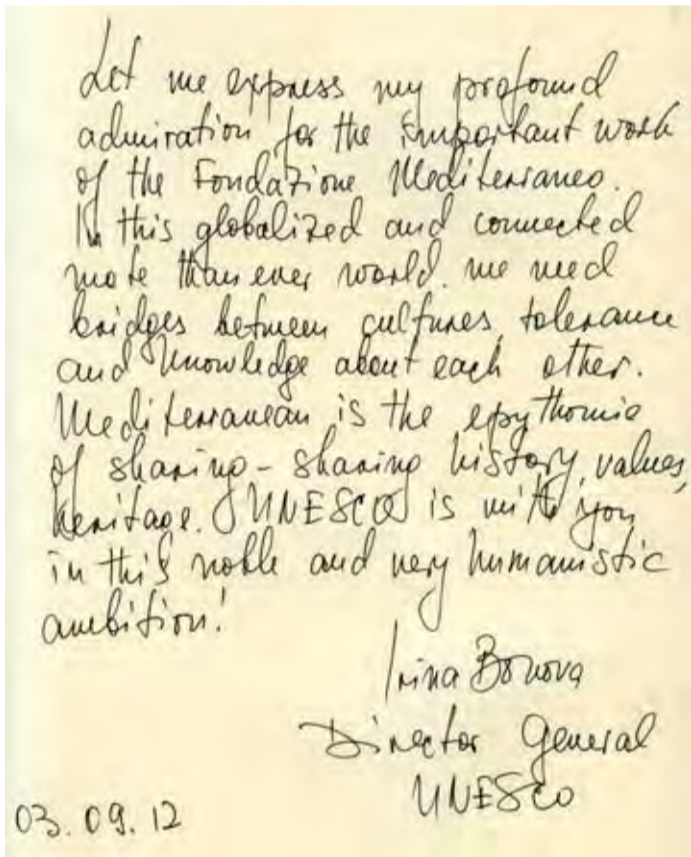 Let me express my profound
admiration for the important work
of the Fondazione Mediterraneo.
In this globalized and connected
more than ever world, we need
bridges between cultures, tolerance
and knowledge about each other.
Mediterranean is the epythomie
of sharing - sharing history, values,
heritage. UNESCO is with you
in this noble and very humanistic
ambition!
Irina Bokova
Director General
UNESCO
03.09.12